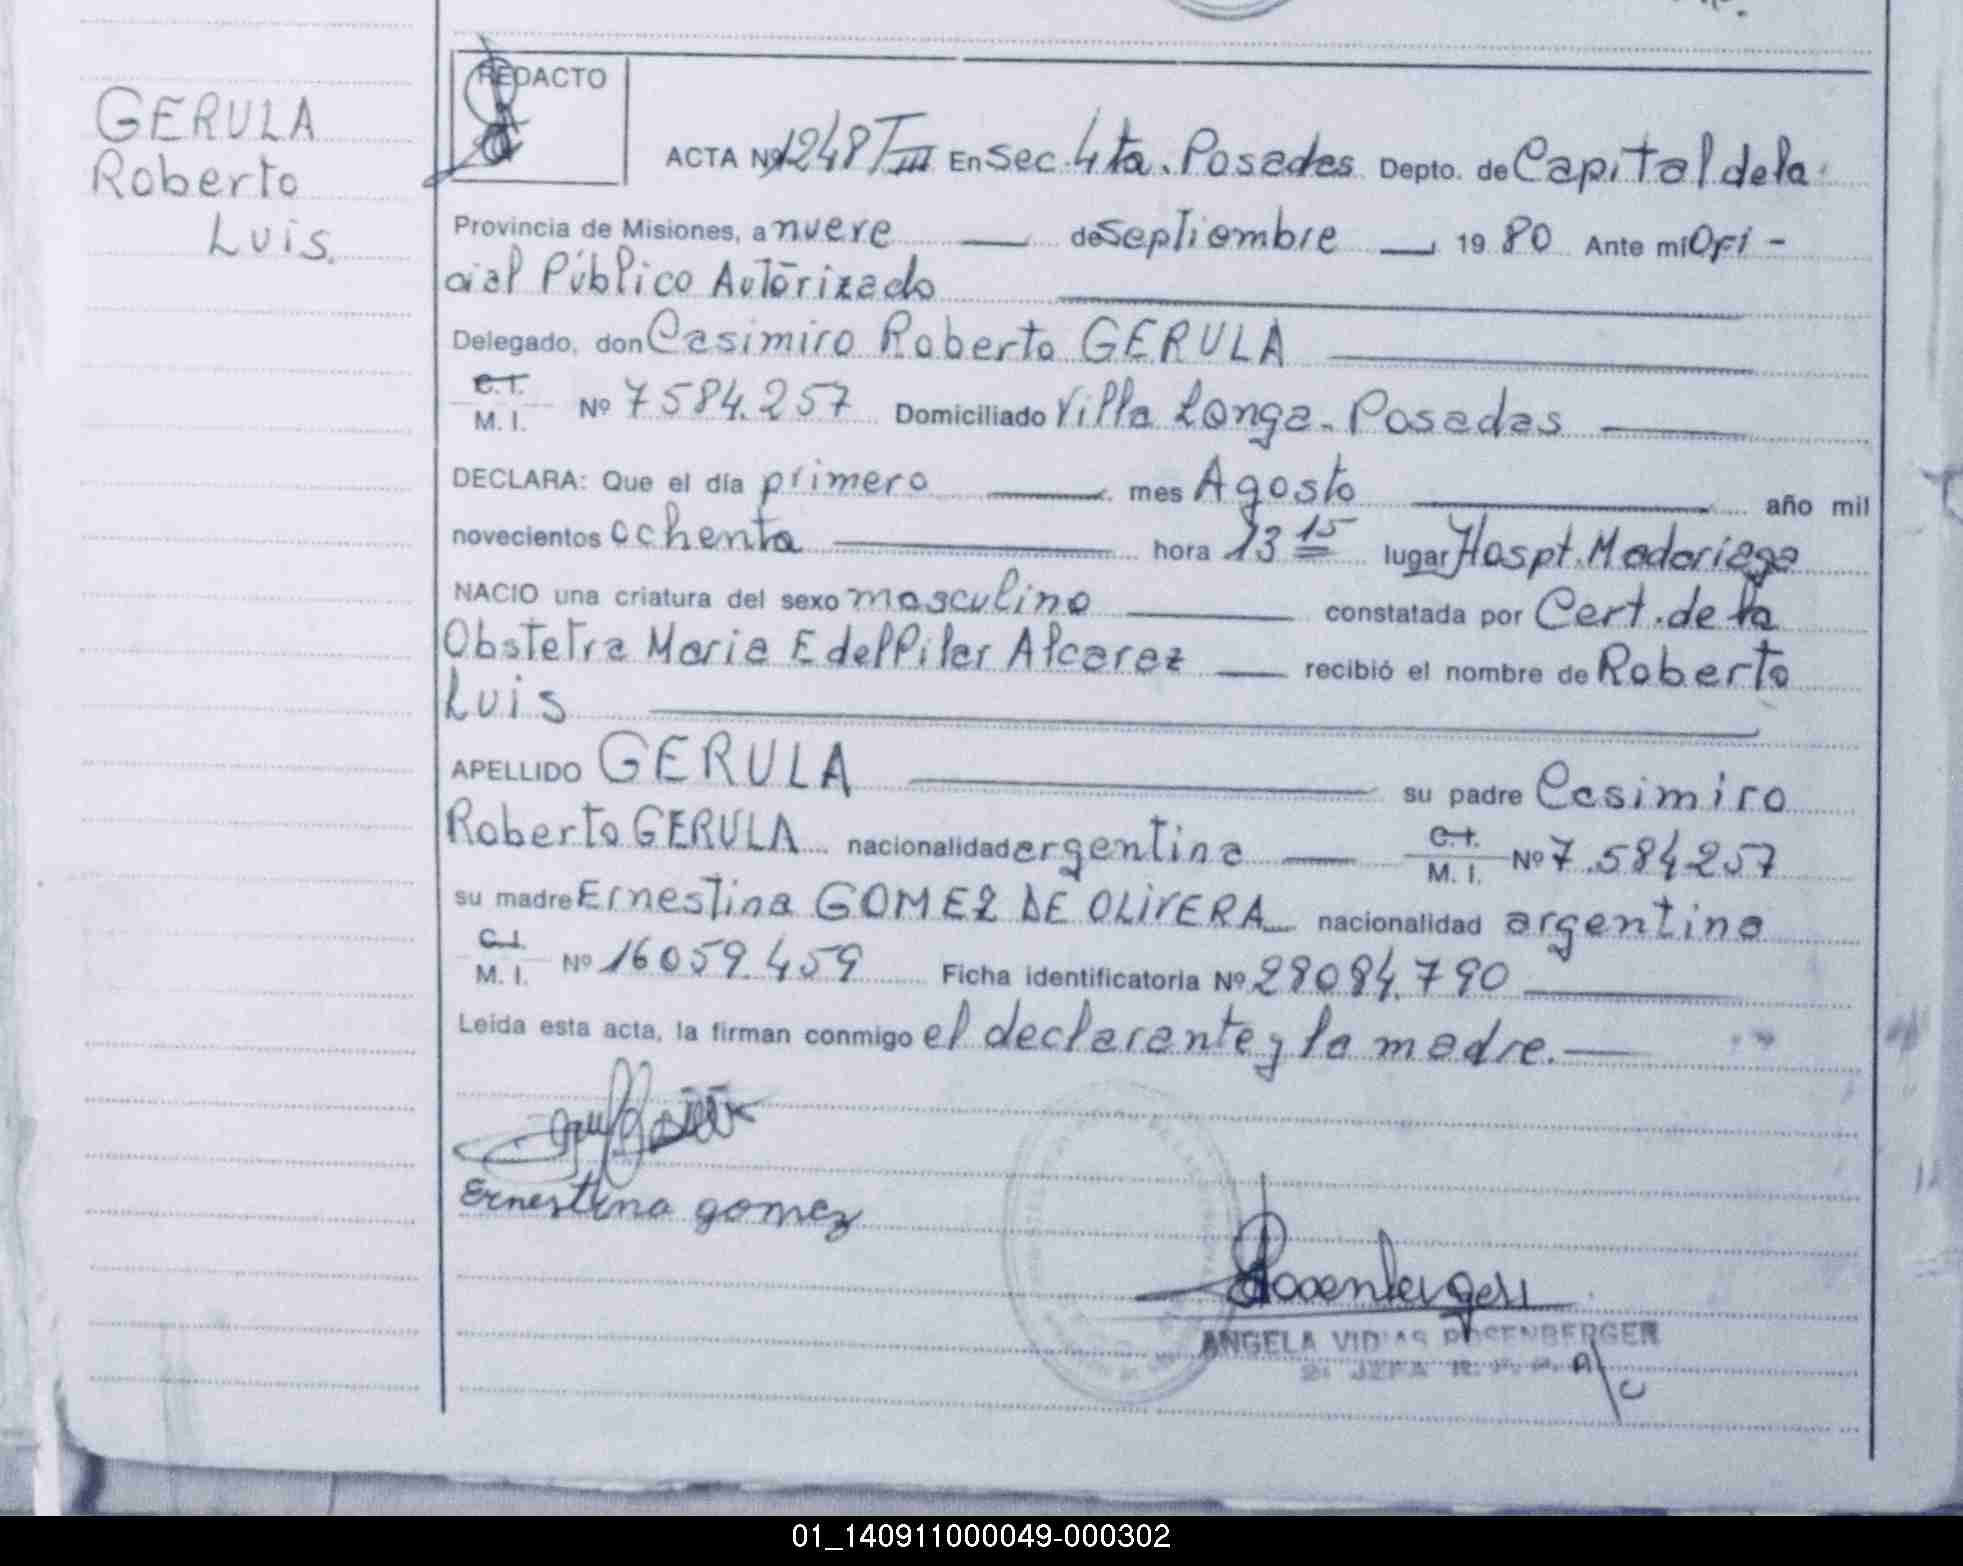 GERULA
Roberto
Luis.
REDACTO
ACTA Nº 1248 T III En Sec. 4ta. Posadas Depto. de Capital de la
Provincia de Misiones, a nueve — de Septiembre — 19 80 Ante mi Ofi-
cial Público Autorizado
Delegado, don Casimiro Roberto GERULA
C.I.
M. I. Nº 7584.257 Domiciliado Villa Longa. Posadas
DECLARA: Que el día primero — mes Agosto — año mil
novecientos ochenta — hora 13 15 lugar Hospt. Madariaga
NACIO una criatura del sexo masculino — constatada por Cert. de la
Obstetra Maria E del Pilar Alcaraz — recibió el nombre de Roberto
Luis
APELLIDO GERULA — su padre Casimiro
Roberto GERULA nacionalidad argentina — C.I. M. I. Nº 7.584257
su madre Ernestina GOMEZ DE OLIVERA nacionalidad argentina
C.I.
M. I. Nº 16059.459 Ficha identificatoria Nº 28084.790
Leída esta acta, la firman conmigo el declarante y la madre.—
Ernestina gomez
Rosenberger
ANGELA VIDIAS ROSENBERGER
JEFA R. P. P. A/C
01_140911000049-000302